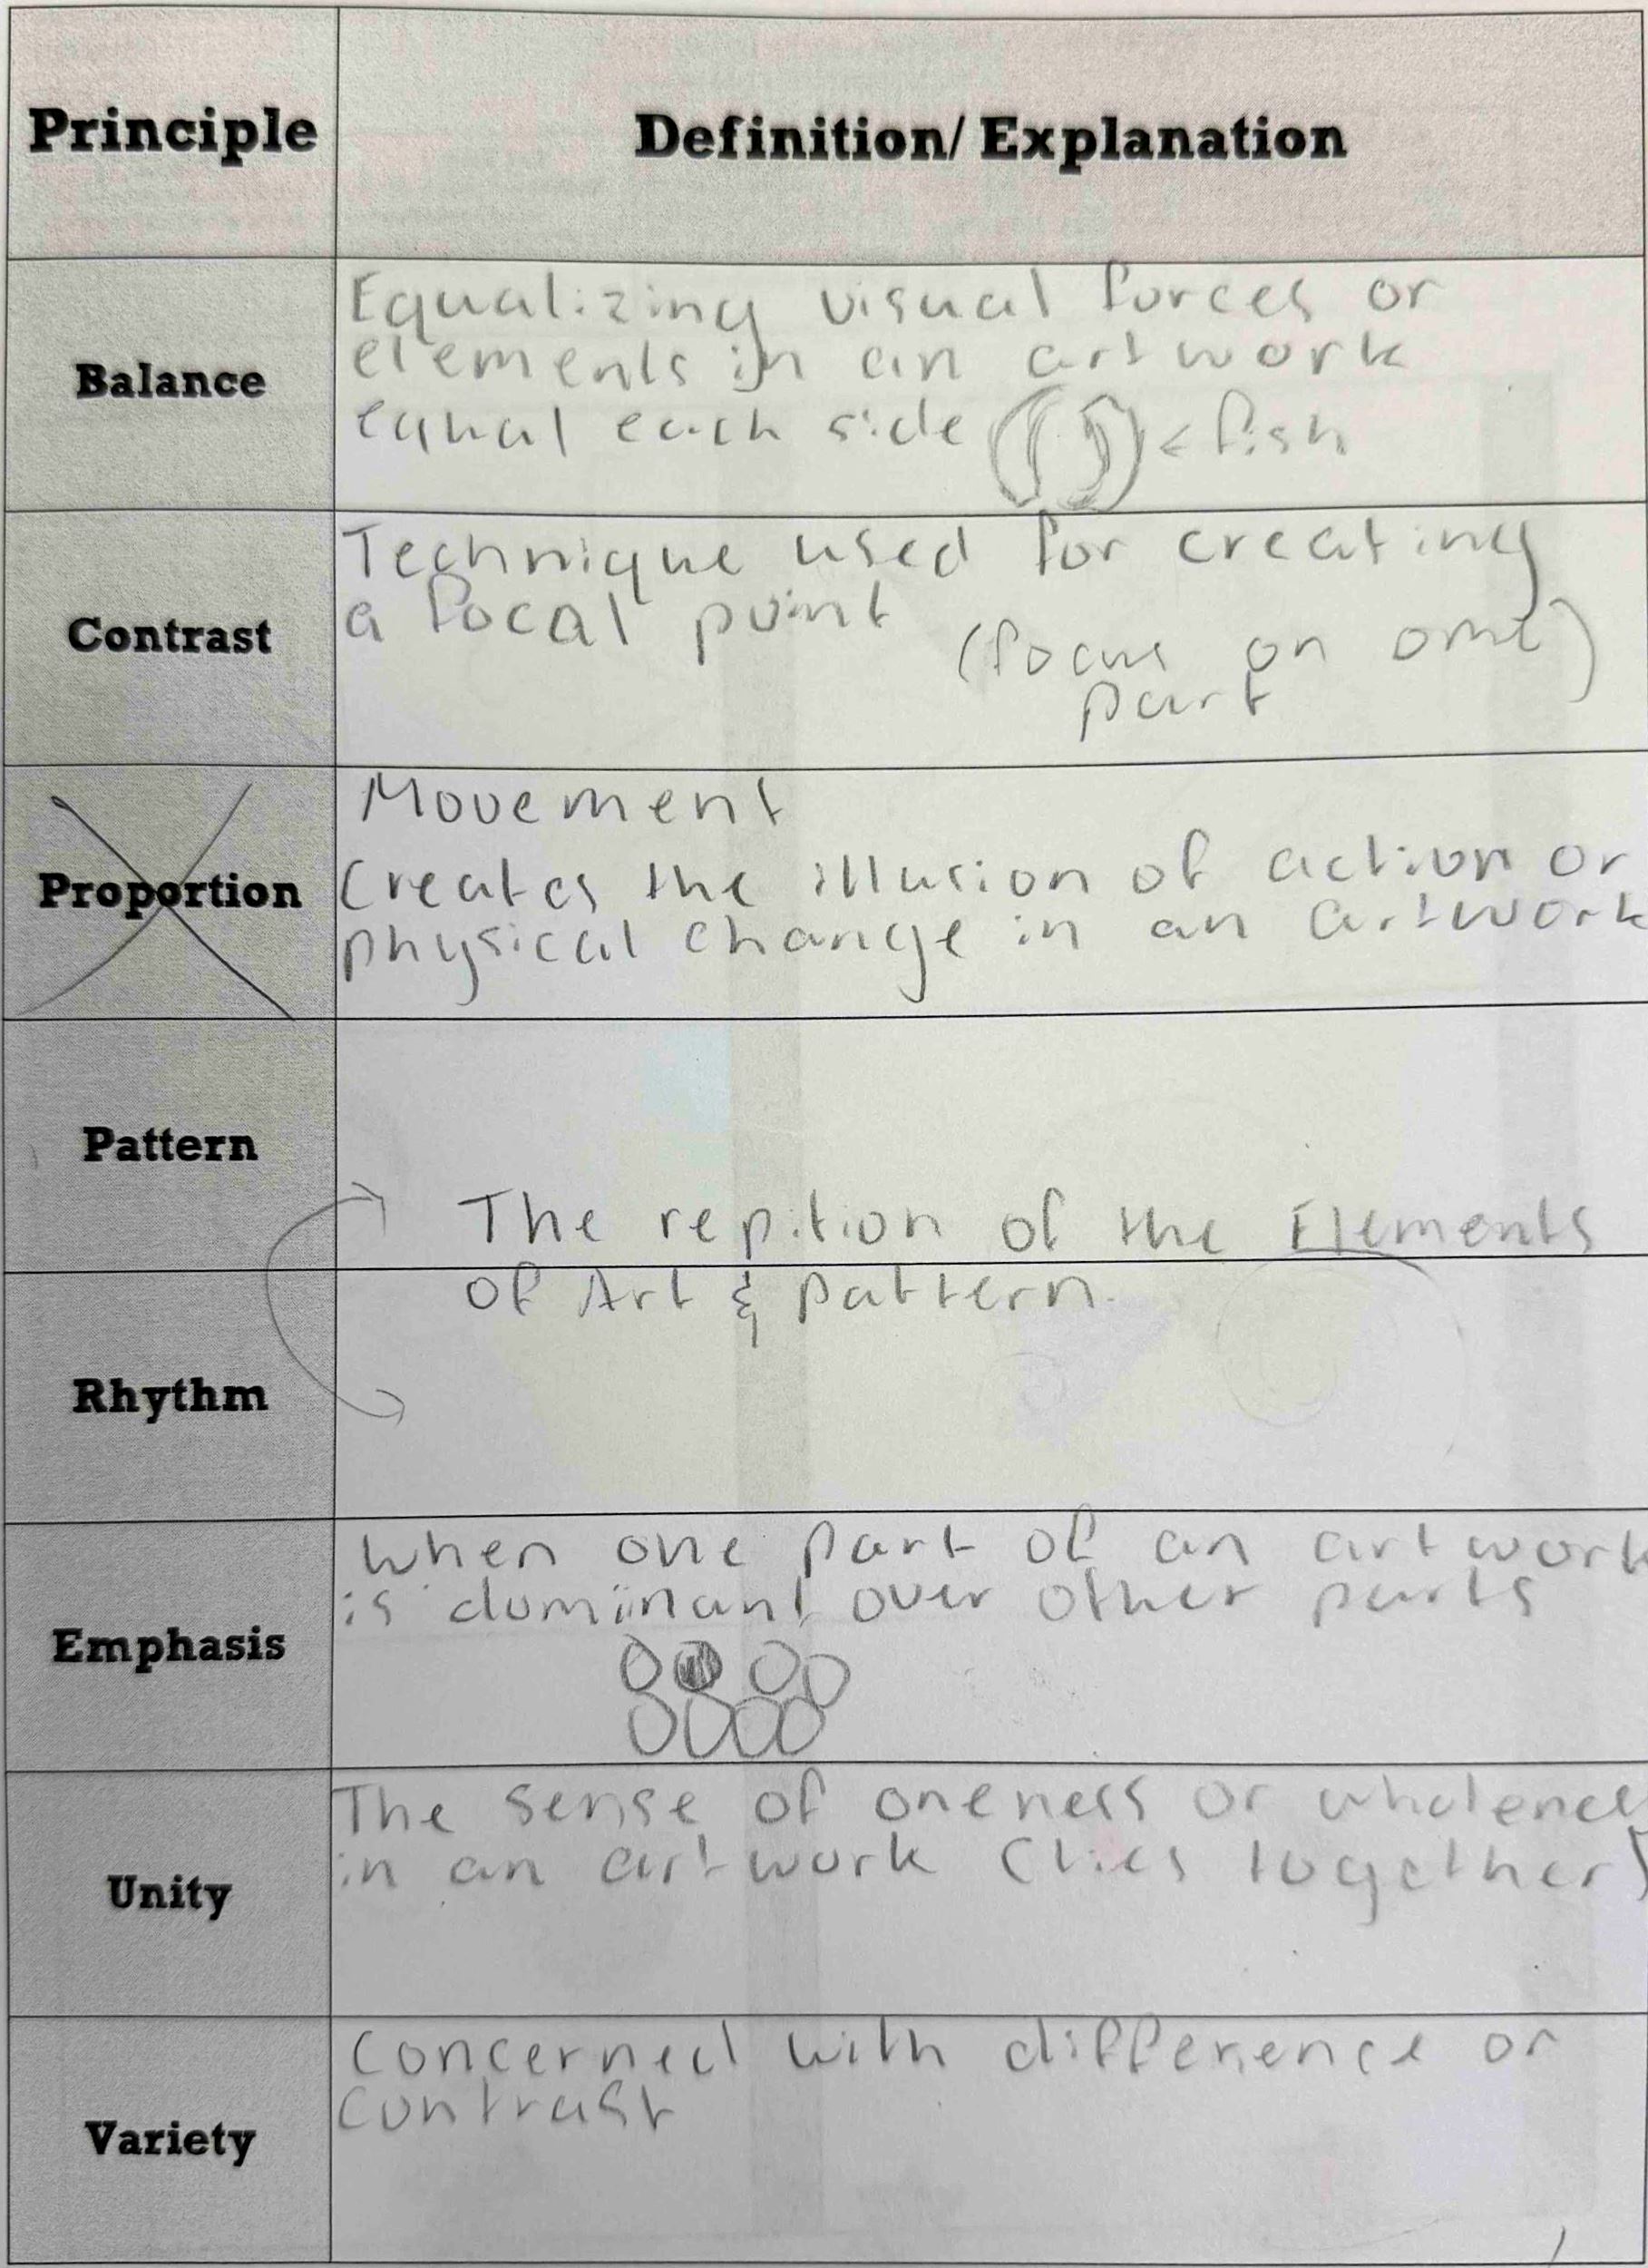 Principle
Definition/ Explanation
Balance
Equalizing visual forces or
elements in an artwork
equal each side < fish
Contrast
Technique used for creating
a focal point
(focus on one)
part
Proportion
Movement
Creates the illusion of action or
physical change in an artwork
Pattern
The repition of the Elements
of Art & pattern.
Rhythm
Emphasis
When one part of an artwork
is dominant over other parts
Unity
The sense of oneness or wholenes
in an artwork (ties together)
Variety
Concerned with difference or
contrast